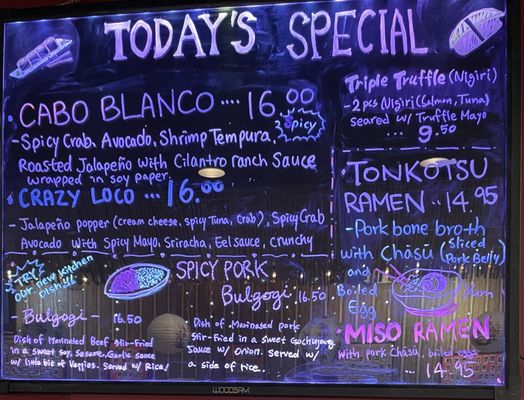 TODAY'S SPECIAL
CABO BLANCO .... 16.00
- Spicy Crab, Avocado, Shrimp Tempura,
Spicy
Roasted Jalapeño with Cilantro ranch Sauce
wrapped in soy paper
CRAZY LOCO ... 16.00
- Jalapeño popper (cream cheese, spicy Tuna, Crab), Spicy Crab
Avocado with Spicy Mayo, Sriracha, Eel sauce, crunchy
TRY
our new kitchen
Dish!!
- Bulgogi - 16.50
Dish of Marinated Beef Stir-Fried
in a sweet Soy, Sesame, Garlic sauce
w/ little bit of Veggies. Served w/ Rice/
SPICY PORK
Bulgogi 16.50
Dish of Marinated pork
Stir-Fried in a sweet Gochujang
Sauce w/ onion. Served w/
a side of rice..
Triple Truffle (Nigiri)
- 2 pcs Nigiri (Salmon, Tuna)
Seared w/ Truffle Mayo
... 9.50
TONKOTSU
RAMEN .. 14.95
- Pork bone broth
with Chāsū (Sliced
Pork Belly)
and
Boiled
Egg
Yum
MISO RAMEN
With pork Chāsū, boiled egg
... 14.95
WOODSAM